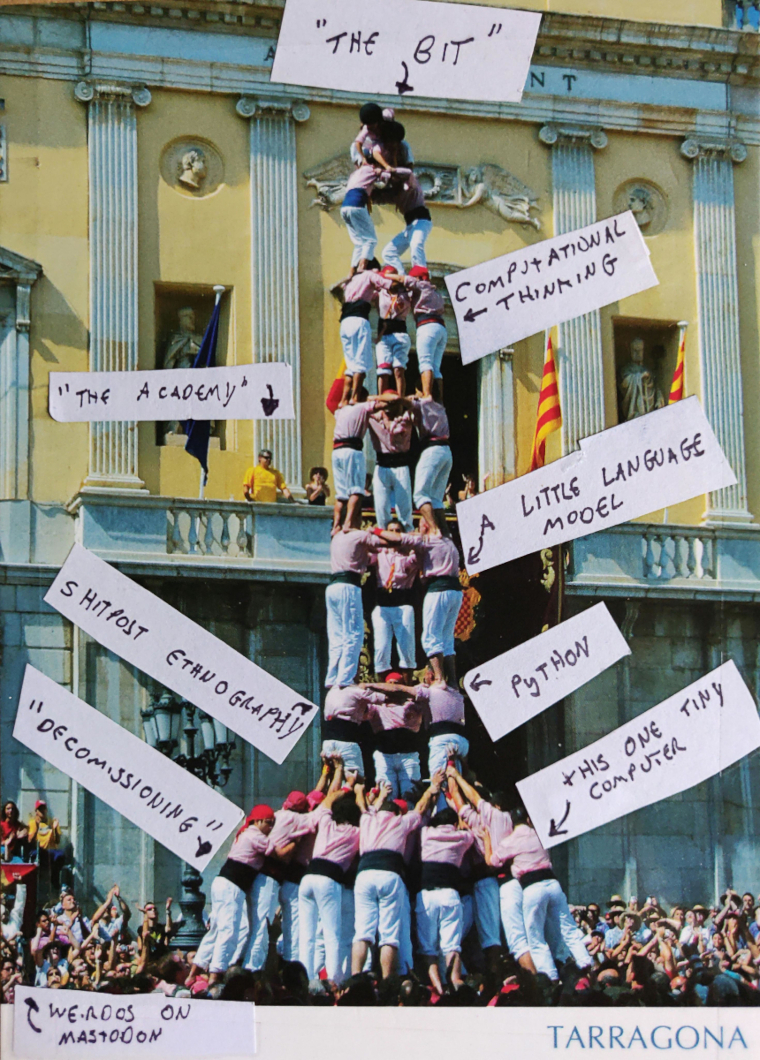 "THE BIT"
A
NT
COMPUTATIONAL
THINKING
"THE ACADEMY"
A LITTLE LANGUAGE
MODEL
SHITPOST ETHNOGRAPHY
PYTHON
"DECOMISSIONING"
THIS ONE TINY
COMPUTER
WEIRDOS ON
MASTODON
TARRAGONA